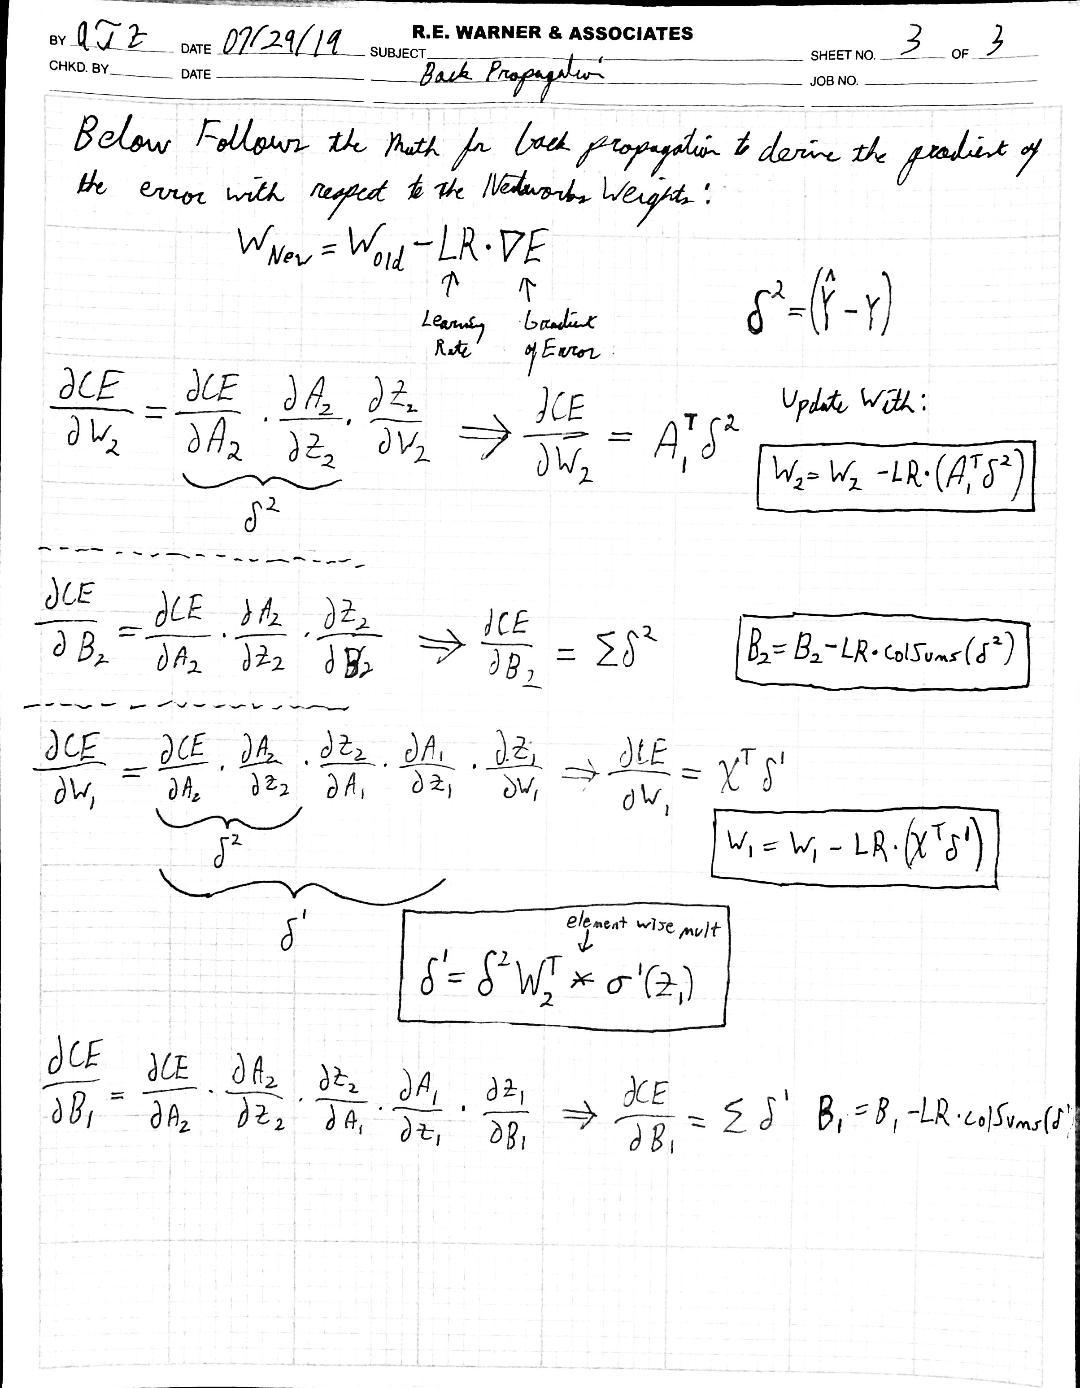 R.E. WARNER & ASSOCIATES
BY QJZ DATE 07/29/19 SUBJECT Back Propagation SHEET NO. 3 OF 3
CHKD. BY DATE JOB NO.
Below Follows the Math for back propagation to derive the gradient of
the error with respect to the Networks Weights:
W_New = W_old - LR · ∇E
↑ ↑
Learning Rate
Gradient of Error
δ² = (Ŷ - Y)
∂CE/∂W₂ = ∂CE/∂A₂ · ∂A₂/∂Z₂ · ∂Z₂/∂W₂ ⇒ ∂CE/∂W₂ = A₁ᵀδ²
δ²
Update With:
W₂ = W₂ - LR·(A₁ᵀδ²)
∂CE/∂B₂ = ∂CE/∂A₂ · ∂A₂/∂Z₂ · ∂Z₂/∂B₂ ⇒ ∂CE/∂B₂ = Σδ²
B₂ = B₂ - LR·colSums(δ²)
∂CE/∂W₁ = ∂CE/∂A₂ · ∂A₂/∂Z₂ · ∂Z₂/∂A₁ · ∂A₁/∂Z₁ · ∂Z₁/∂W₁ ⇒ ∂CE/∂W₁ = Xᵀδ¹
δ²
W₁ = W₁ - LR·(Xᵀδ¹)
δ¹
element wise mult
↓
δ¹ = δ²W₂ᵀ * σ'(Z₁)
∂CE/∂B₁ = ∂CE/∂A₂ · ∂A₂/∂Z₂ · ∂Z₂/∂A₁ · ∂A₁/∂Z₁ · ∂Z₁/∂B₁ ⇒ ∂CE/∂B₁ = Σδ¹ B₁ = B₁ - LR·colSums(δ¹